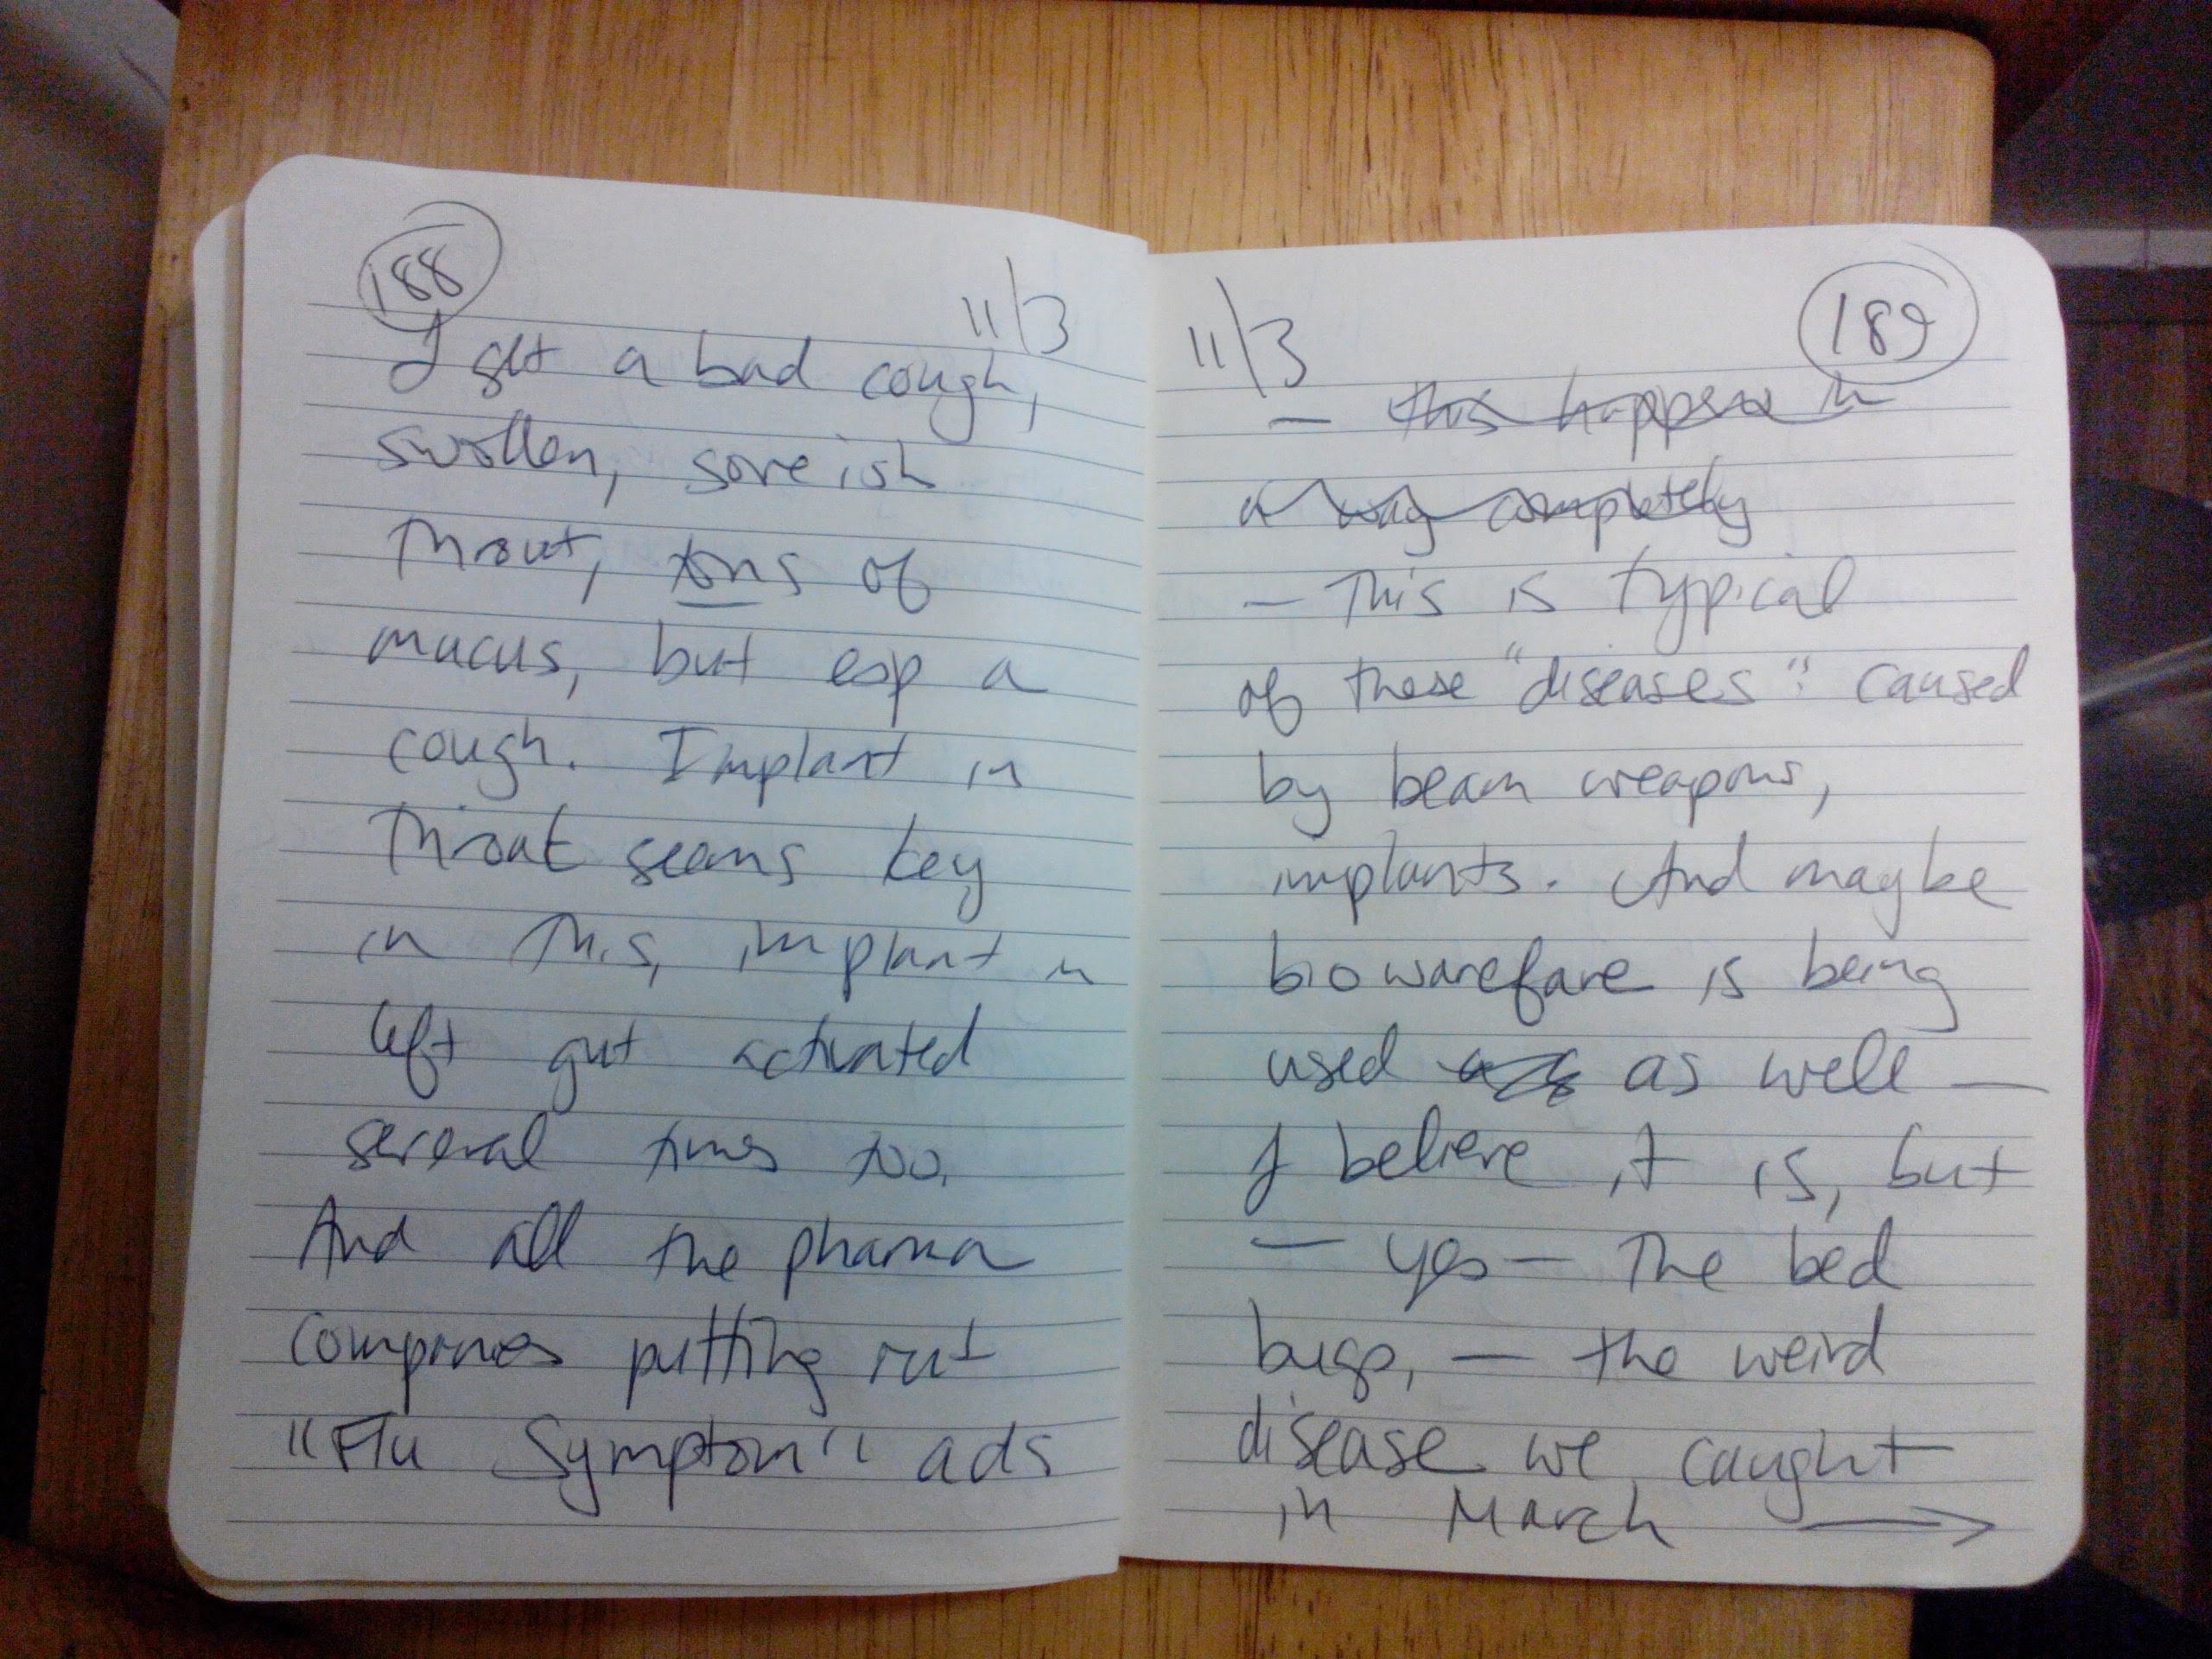 188
11/3
I get a bad cough,
swollen, soreish
Throut, tons of
mucus, but esp a
cough. Implant in
Throat seems key
in This, implant in
left gut activated
several times too.
And all the pharma
companies putting out
"Flu Symptom" ads
11/3
189
— this happens in
a way completely
— This is typical
of these "diseases" caused
by beam weapons,
implants. And maybe
biowarefare is being
used as well —
I believe it is, but
— yes — The bed
bugs, — the weird
disease we caught
in March →